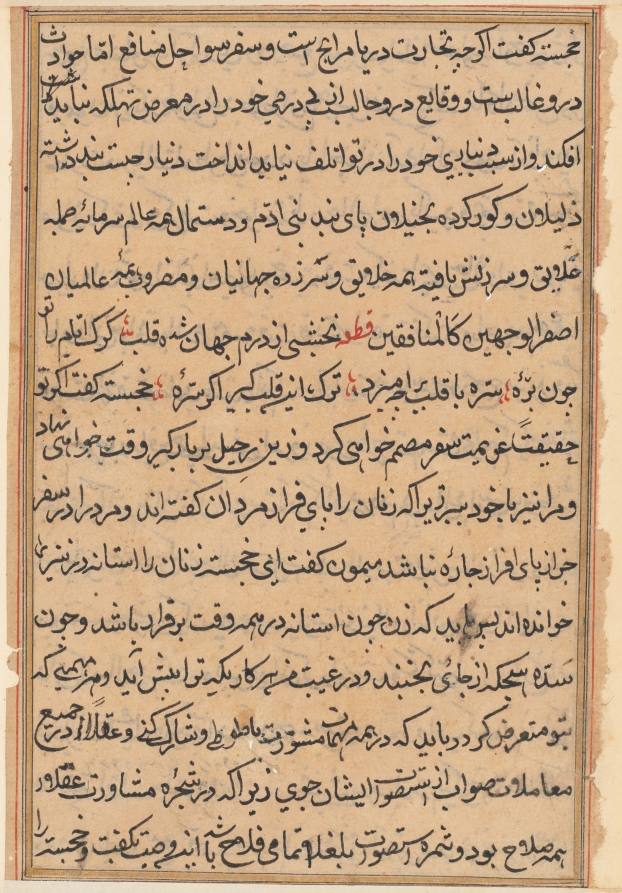 خجسته کفت اکرچه تجارت دریا مرابح است و سفر سواحل منافع امّا حوادث
درو غالب است و وقایع درو جالب از پی درمی خود را در معرض تهلکه نباید
افکند و از سبب دیناری خود را در تلف نباید انداخت دنیار جیست بند داشته
ذلیلان و کور کرده بخیلان پای بند بنی ادم و دستمال همه عالم سرمایه جمله
علایق و سرزنش یافته همه خلایق و شرزده جهانیان و مضروب همه عالمیان
اصفر الوجهین کالمنافقین قطعه نخشبی از درم جهان شده قلب کرک ایام را
چون برّه سره با قلب برامیزد ترک این قلب کیر اکر سرّه خجسته کفت اکر تو
حقیقتاً عزیمت سفر مصمم خواهی کرد و زین رحیل بر بارکیر وقت خواهی نهاد
و مرا نیز با خود ببر زیرا که زنان را پای افراز مردان کفته اند و مرد را در سفر
از پای افراز چاره نباشد میمون کفت ای خجسته زنان را استانه در نیز
خوانده اند پس باید که زن چون استانه در همه وقت برقرار باشد و چون
سدّه از جای نجنبد و در غیبت من هر کاریکه ترا پیش آید و هر مهمی که
بتو متعرض کردد باید که در همه مهمات مشورت با طوطی و شارک کنی و عقلاً از جمیع
معاملات صواب از استصواب ایشان جوی زیرا که در شجره مشاورت عقلا ور
همه صلاح بود و ثمره استصواب بلغا تمامی فلاح باشد این وصیت بکفت و خجسته را